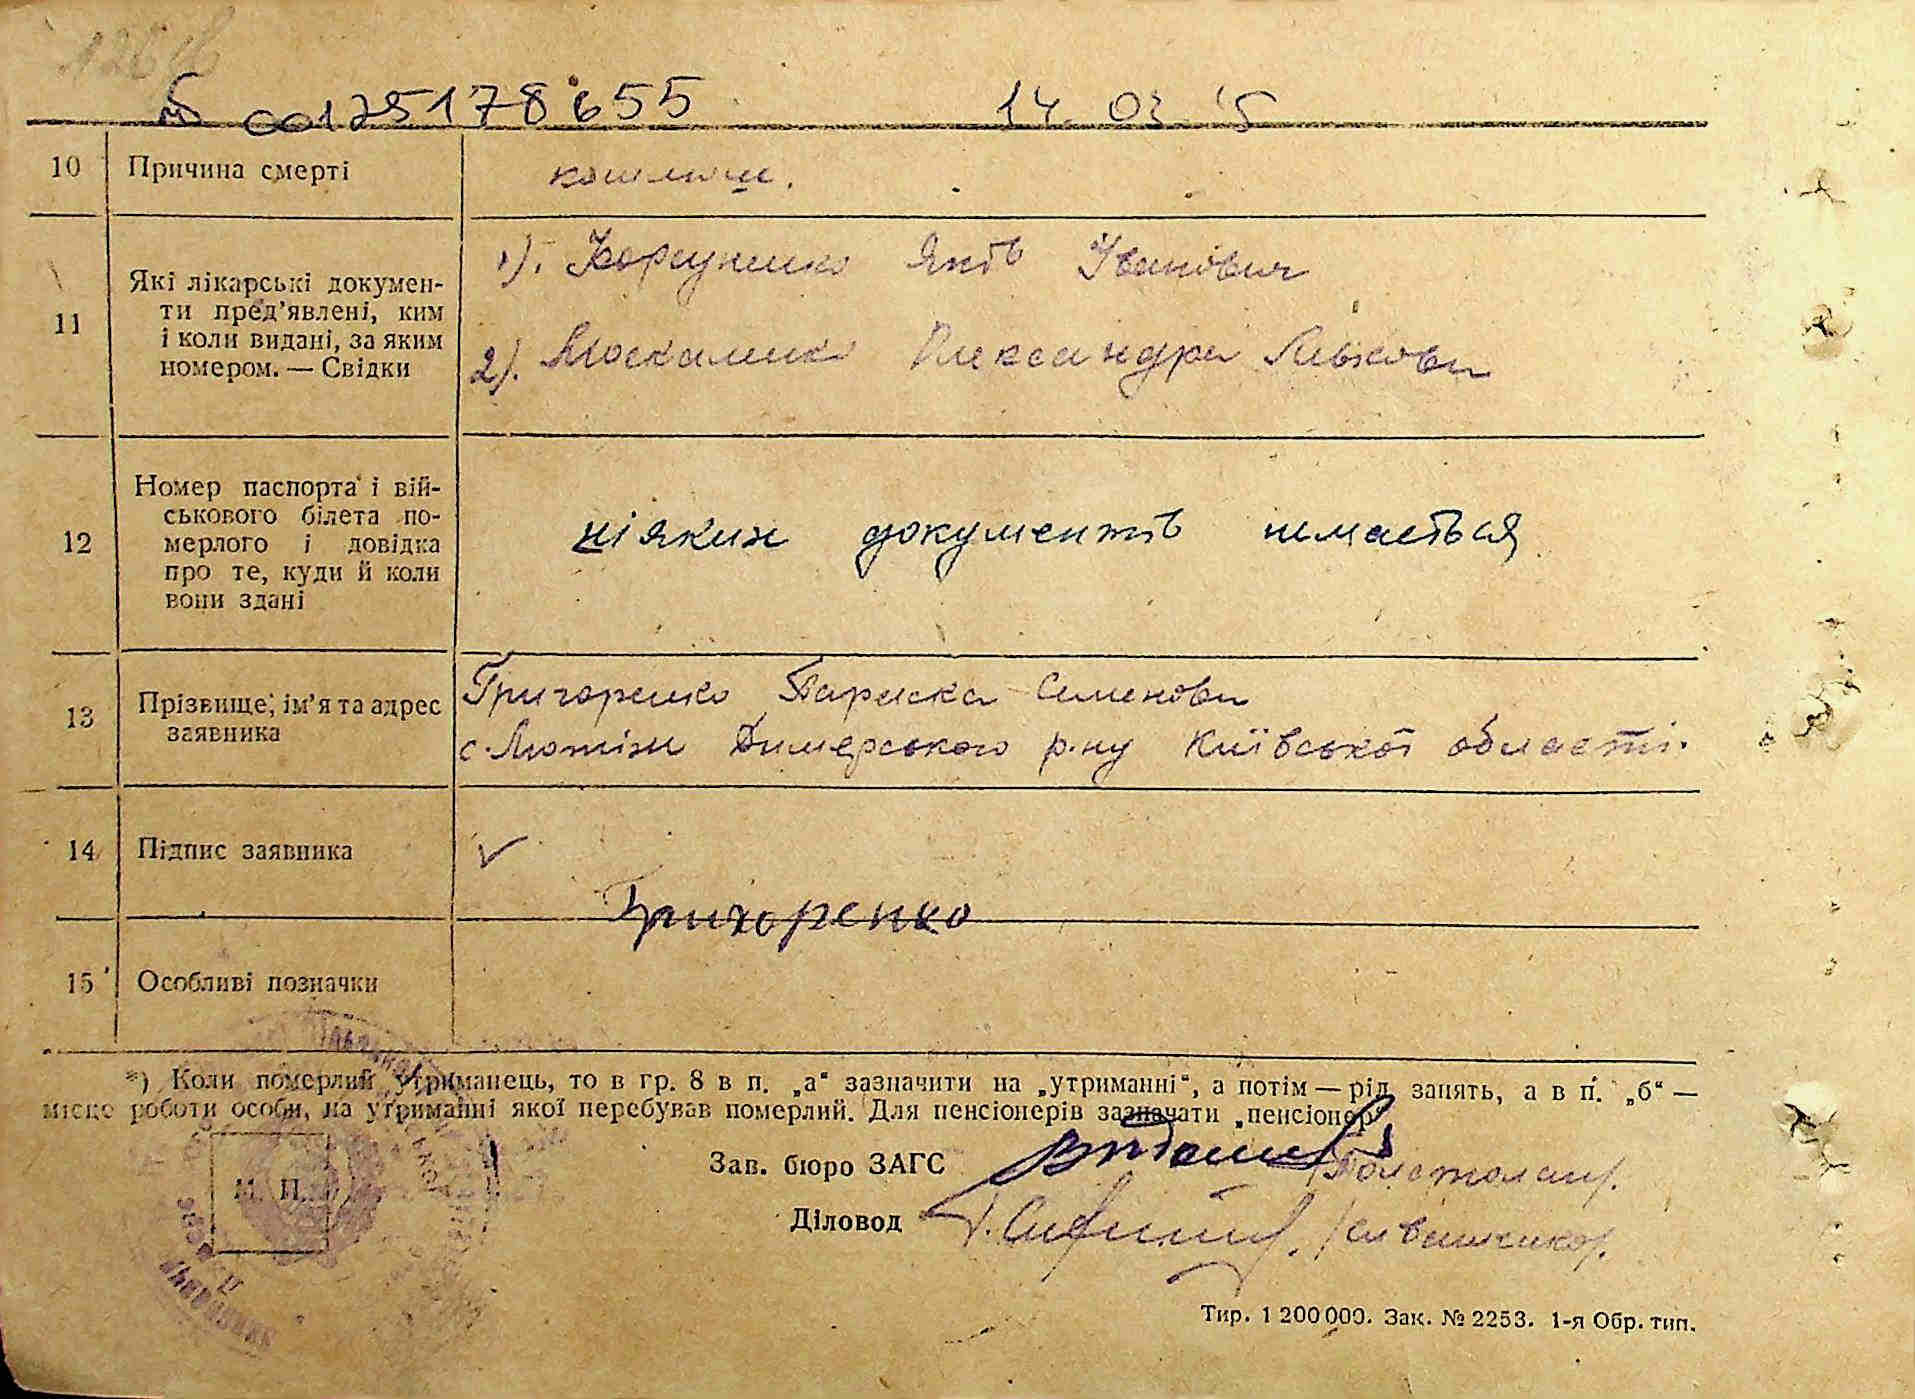 00125178655 14.03.15
10 Причина смерті кашлюк.
11 Які лікарські докумен-
ти пред’явлені, ким
і коли видані, за яким
номером. — Свідки
1). Яків Іванович
2). Москаленко Олександра
12 Номер паспорта і вій-
ськового білета по-
мерлого і довідка
про те, куди й коли
вони здані
ніяких документів немається
13 Прізвище, ім’я та адрес
заявника
Григоренко Параска Семенов
с. Лютіж Димерського р-ну Київської області.
14 Підпис заявника
Григоренко
15 Особливі позначки
*) Коли померлий утриманець, то в гр. 8 в п. „а“ зазначити на „утриманні“, а потім — рід занять, а в п. „б“ —
місце роботи особи, на утриманні якої перебував померлий. Для пенсіонерів зазначати „пенсіонер“
Зав. бюро ЗАГС
М. П.
Діловод
Тир. 1 200 000. Зак. № 2253. 1-я Обр. тип.